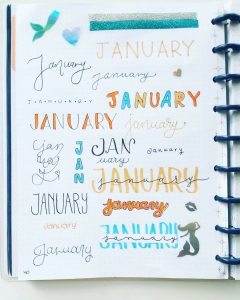 January
JANUARY
January
january
J·A·N·U·A·R·Y
JANUARY
JANUARY
january
Jan
ua
ry
J
A
N
JAN
uary
january
JANUARY
JANUARY
january
january
JANUARY
january
January